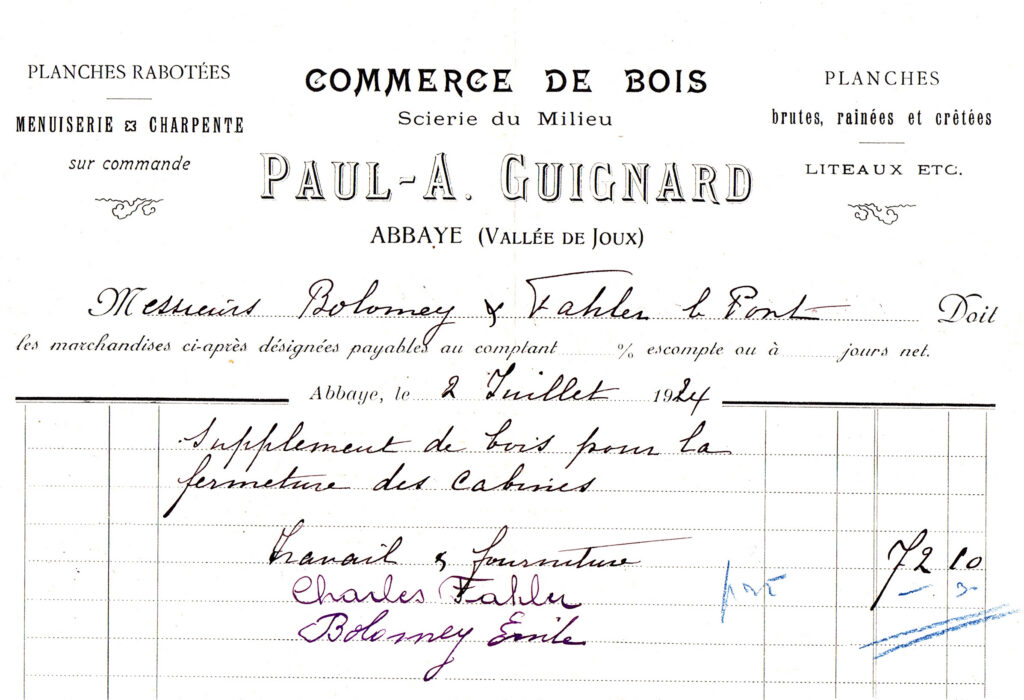 PLANCHES RABOTÉES
MENUISERIE & CHARPENTE
sur commande
COMMERCE DE BOIS
Scierie du Milieu
PAUL-A. GUIGNARD
ABBAYE (VALLÉE DE JOUX)
PLANCHES
brutes, rainées et crêtées
LITEAUX ETC.
Messieurs Bolomey & Fahler le Pont Doit
les marchandises ci-après désignées payables au comptant % escompte ou à jours net.
Abbaye, le 2 Juillet 1924
Supplement de bois pour la
fermeture des cabines
travail & fourniture 72 10
Charles Fahler
Bolomey Emile